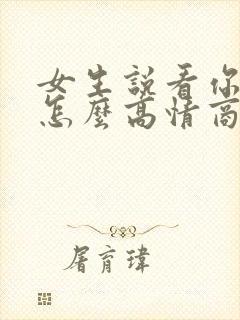 女生說看你
怎麼高情商
屠育瑋